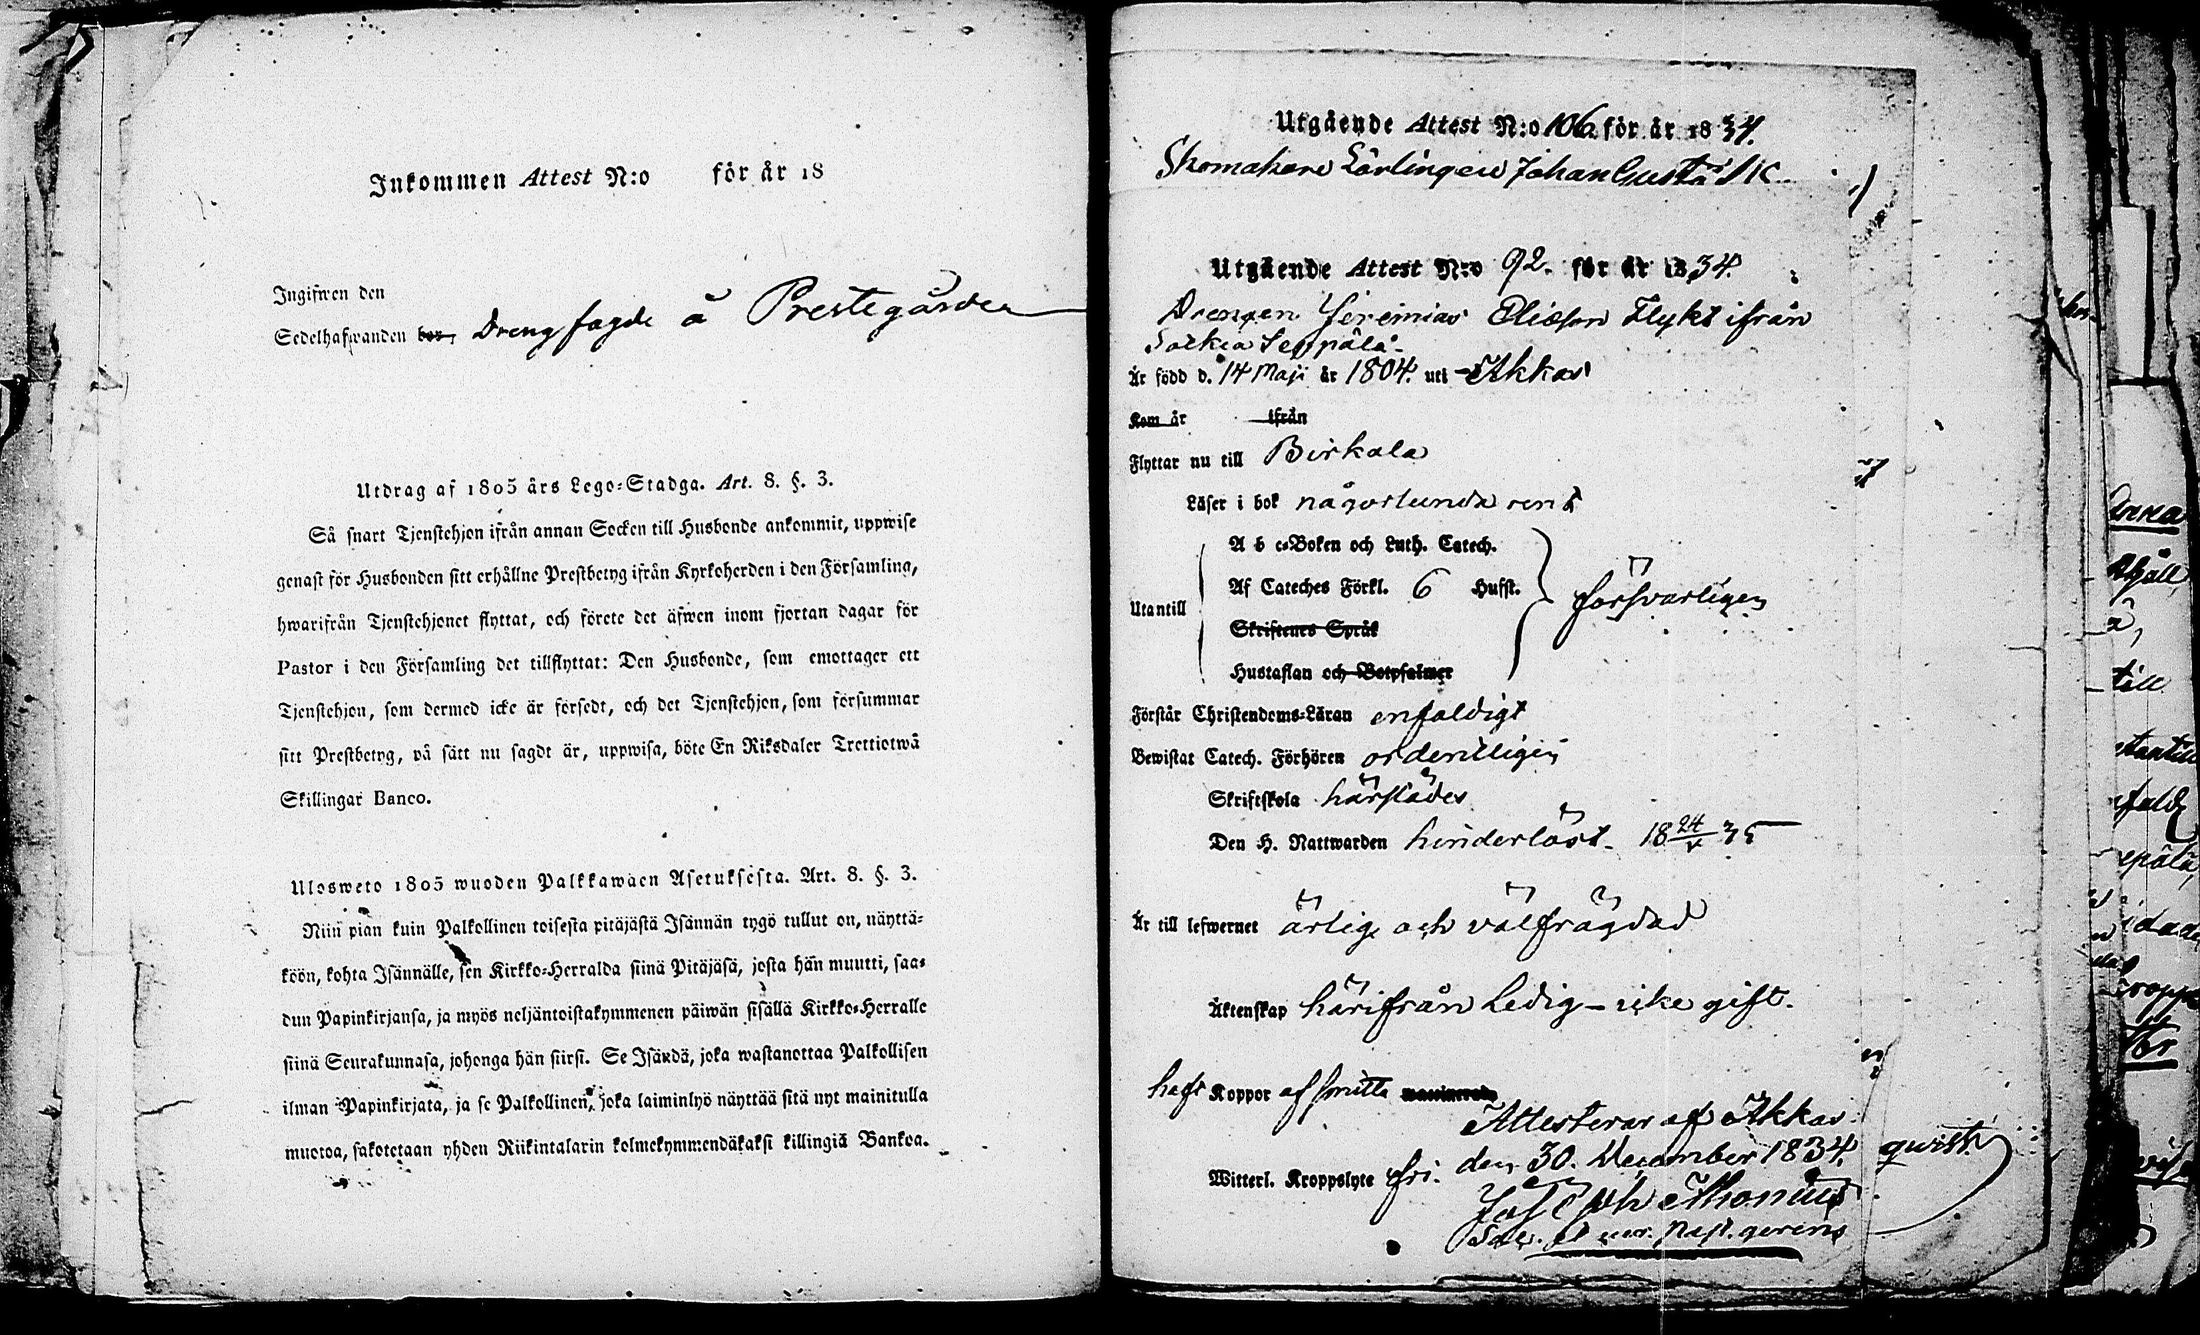 Inkommen Attest N:o för år 18
Ingifwen den
Sedelhafwanden bor, Dreng fogde å Prestegården
Utdrag af 1805 års Lego-Stadga. Art. 8. §. 3.
Så snart Tjenstehjon ifrån annan Socken till Husbonde ankommit, uppwise
genast för Husbonden sitt erhållne Prestbetyg ifrån Kyrkoherden i den Församling,
hwarifrån Tjenstehjonet flyttat, och förete det äfwen inom fjortan dagar för
Pastor i den Församling det tillflyttat: Den Husbonde, som emottager ett
Tjenstehjon, som dermed icke är försedt, och det Tjenstehjon, som försummar
sitt Prestbetyg, på sätt nu sagdt är, uppwisa, böte En Riksdaler Trettiotwå
Skillingar Banco.
Ulosweto 1805 wuoden Palkkawäen Asetuksesta. Art. 8. §. 3.
Niin pian kuin Palkollinen toisesta pitäjästä Isännän tygö tullut on, näyttä-
köön, kohta Isännälle, sen Kirkko-Herralda siinä Pitäjäsä, josta hän muutti, saa-
dun Papinkirjansa, ja myös neljäntoistakymmenen päiwän sisällä Kirkko-Herralle
siinä Seurakunnasa, johonga hän siirsi. Se Isändä, joka wastanottaa Palkollisen
ilman Papinkirjata, ja se Palkollinen, joka laiminlyö näyttää sitä nyt mainitulla
muotoa, sakotetaan yhden Riikintalarin kolmekymmendäkaksi killingiä Bankoa.
Utgående Attest N:o 106. för år 1834.
Skomakare Lärlingen Johan Gustaf
Utgående Attest N:o 92. för år 1834.
Drengen Jeremias Eliæson Flykt ifrån
Seppälä
Är född d. 14 Maji år 1804. uti Akkas
Kom år ifrån
Flyttar nu till Birkala
Läser i bok någorlunda rent
A b c-Boken och Luth. Catech.
Utantill Af Cateches Förkl. 6 Hufst. försvarligen
Skriftenes Språk
Hustaflan och Botpsalmer
Förstår Christendoms-Läran enfaldigt
Bewistat Catech. Förhören ordentligen
Skriftskola härstädes
Den H. Nattwarden hinderlöst. 18 24/V 35
Är till lefwernet ärlig och välfrägdad
Äktenskap härifrån ledig – icke gift.
haft Koppor af smitta waccinerats
Attesterar af Akkas
den 30. December 1834.
Witterl. Kroppslyte fri.
Joseph Thomas
qwist.